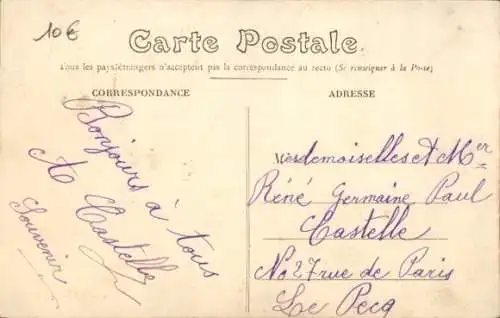 10€
Carte Postale.
Tous les pays étrangers n'acceptent pas la correspondance au recto (Se renseigner à la Poste)
CORRESPONDANCE
Bonjours à tous
A Castelle
Souvenir
ADRESSE
Mesdemoiselles et Mer
René Germaine Paul
Castelle
No 27 rue de Paris
Le Pecq